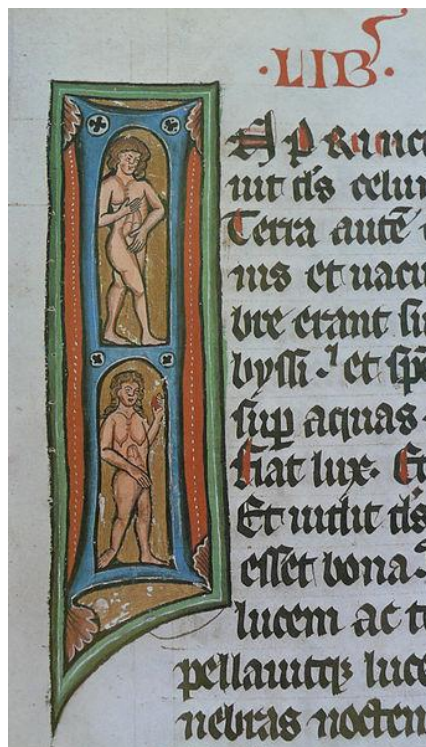 ·LIB·
A pRinci
uit ds celu
Terra autē
nis et uacu
bre erant su
byssi · et spe
sup aquas ·
fiat lux · Et
Et uidit ds
esset bona ·
lucem ac te
pellauitq; luce
nebras noctem